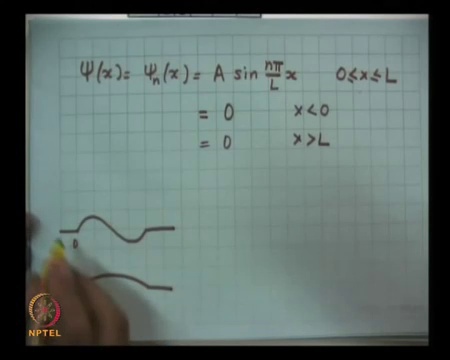 Ψ(x) = Ψₙ(x) = A sin nπ/L x 0≤x≤L
= 0 x<0
= 0 x>L
0
NPTEL